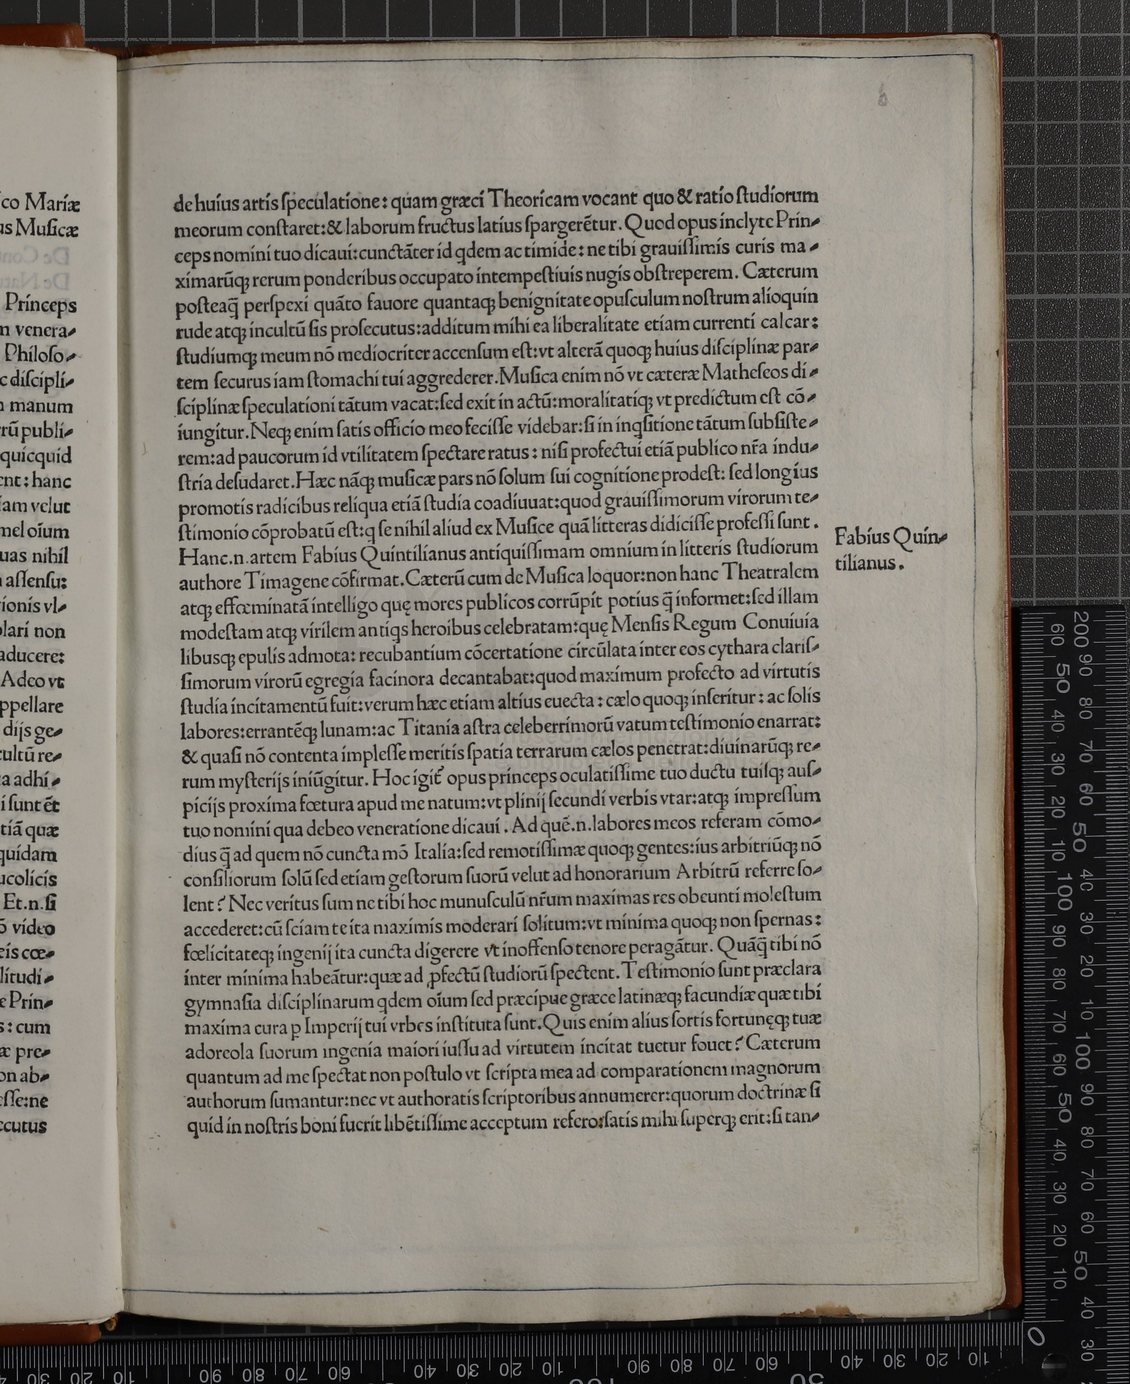 de huius artis ſpeculatione: quam græci Theoricam vocant quo & ratio ſtudiorum
meorum conſtaret:& laborum fructus latius ſpargerẽtur. Quod opus inclyte Prin⸗
ceps nomini tuo dicaui:cunctãter id qdem ac timide: ne tibi grauiſſimis curis ma⸗
ximarũqȝ rerum ponderibus occupato intempeſtiuis nugis obſtreperem. Cæterum
poſteaq̃ perſpexi quãto fauore quantaqȝ benignitate opuſculum noſtrum alioquin
rude atqȝ incultũ ſis proſecutus:additum mihi ea liberalitate etiam currenti calcar:
ſtudiumqȝ meum nõ mediocriter accenſum eſt:vt alterã quoqȝ huius diſciplinæ par⸗
tem ſecurus iam ſtomachi tui aggrederer.Muſica enim nõ vt cæteræ Matheſeos di⸗
ſciplinæ ſpeculationi tãtum vacat:ſed exit in actũ:moralitatiqȝ vt predictum eſt cõ⸗
iungitur.Neqȝ enim ſatis officio meo feciſſe videbar:ſi in inqſitione tãtum ſubſiſte⸗
rem:ad paucorum id vtilitatem ſpectare ratus: niſi profectui etiã publico nr̃a indu⸗
ſtria deſudaret.Hæc nãqȝ muſicæ pars nõ ſolum ſui cognitione prodeſt: ſed longius
promotis radicibus reliqua etiã ſtudia coadiuuat:quod grauiſſimorum virorum te⸗
ſtimonio cõprobatũ eſt:q ſe nihil aliud ex Muſice quã litteras didiciſſe profeſſi ſunt.
Hanc.n.artem Fabius Quintilianus antiquiſſimam omnium in litteris ſtudiorum
authore Timagene cõfirmat.Cæterũ cum de Muſica loquor:non hanc Theatralem
atqȝ effœminatã intelligo quę mores publicos corrũpit potius q̃ informet:ſed illam
modeſtam atqȝ virilem antiqs heroibus celebratam:quę Menſis Regum Conuiuia
libusqȝ epulis admota: recubantium cõcertatione circũlata inter eos cythara clariſ⸗
ſimorum virorũ egregia facinora decantabat:quod maximum profecto ad virtutis
ſtudia incitamentũ fuit:verum hæc etiam altius euecta: cælo quoqȝ inſeritur: ac ſolis
labores:errantẽqȝ lunam:ac Titania aſtra celeberrimorũ vatum teſtimonio enarrat:
& quaſi nõ contenta impleſſe meritis ſpatia terrarum cælos penetrat:diuinarũqȝ re⸗
rum myſterijs iniũgitur. Hoc igit̃ opus princeps oculatiſſime tuo ductu tuiſqȝ auſ⸗
picijs proxima fœtura apud me natum:vt plinij ſecundi verbis vtar:atqȝ impreſſum
tuo nomini qua debeo veneratione dicaui. Ad quẽ.n.labores meos referam cõmo⸗
dius q̃ ad quem nõ cuncta mõ Italia:ſed remotiſſimæ quoqȝ gentes:ius arbitriũqȝ nõ
conſiliorum ſolũ ſed etiam geſtorum ſuorũ velut ad honorarium Arbitrũ referre ſo⸗
lent? Nec veritus ſum ne tibi hoc munuſculũ nr̃um maximas res obeunti moleſtum
accederet:cũ ſciam te ita maximis moderari ſolitum:vt minima quoqȝ non ſpernas:
fœlicitateqȝ ingenij ita cuncta digerere vt inoffenſo tenore peragãtur. Quãq̃ tibi nõ
inter minima habeãtur:quæ ad ꝓfectũ ſtudiorũ ſpectent.Teſtimonio ſunt præclara
gymnaſia diſciplinarum qdem oĩum ſed præcipue græce latinæqȝ facundiæ quæ tibi
maxima cura ꝑ Imperij tui vrbes inſtituta ſunt.Quis enim alius ſortis fortunęqȝ tuæ
adoreola ſuorum ingenia maiori iuſſu ad virtutem incitat tuetur fouet? Cæterum
quantum ad me ſpectat non poſtulo vt ſcripta mea ad comparationem magnorum
authorum ſumantur:nec vt authoratis ſcriptoribus annumerer:quorum doctrinæ ſi
quid in noſtris boni fuerit libẽtiſſime acceptum refero:ſatis mihi ſuperqȝ erit:ſi tan⸗
Fabius Quin⸗
tilianus.